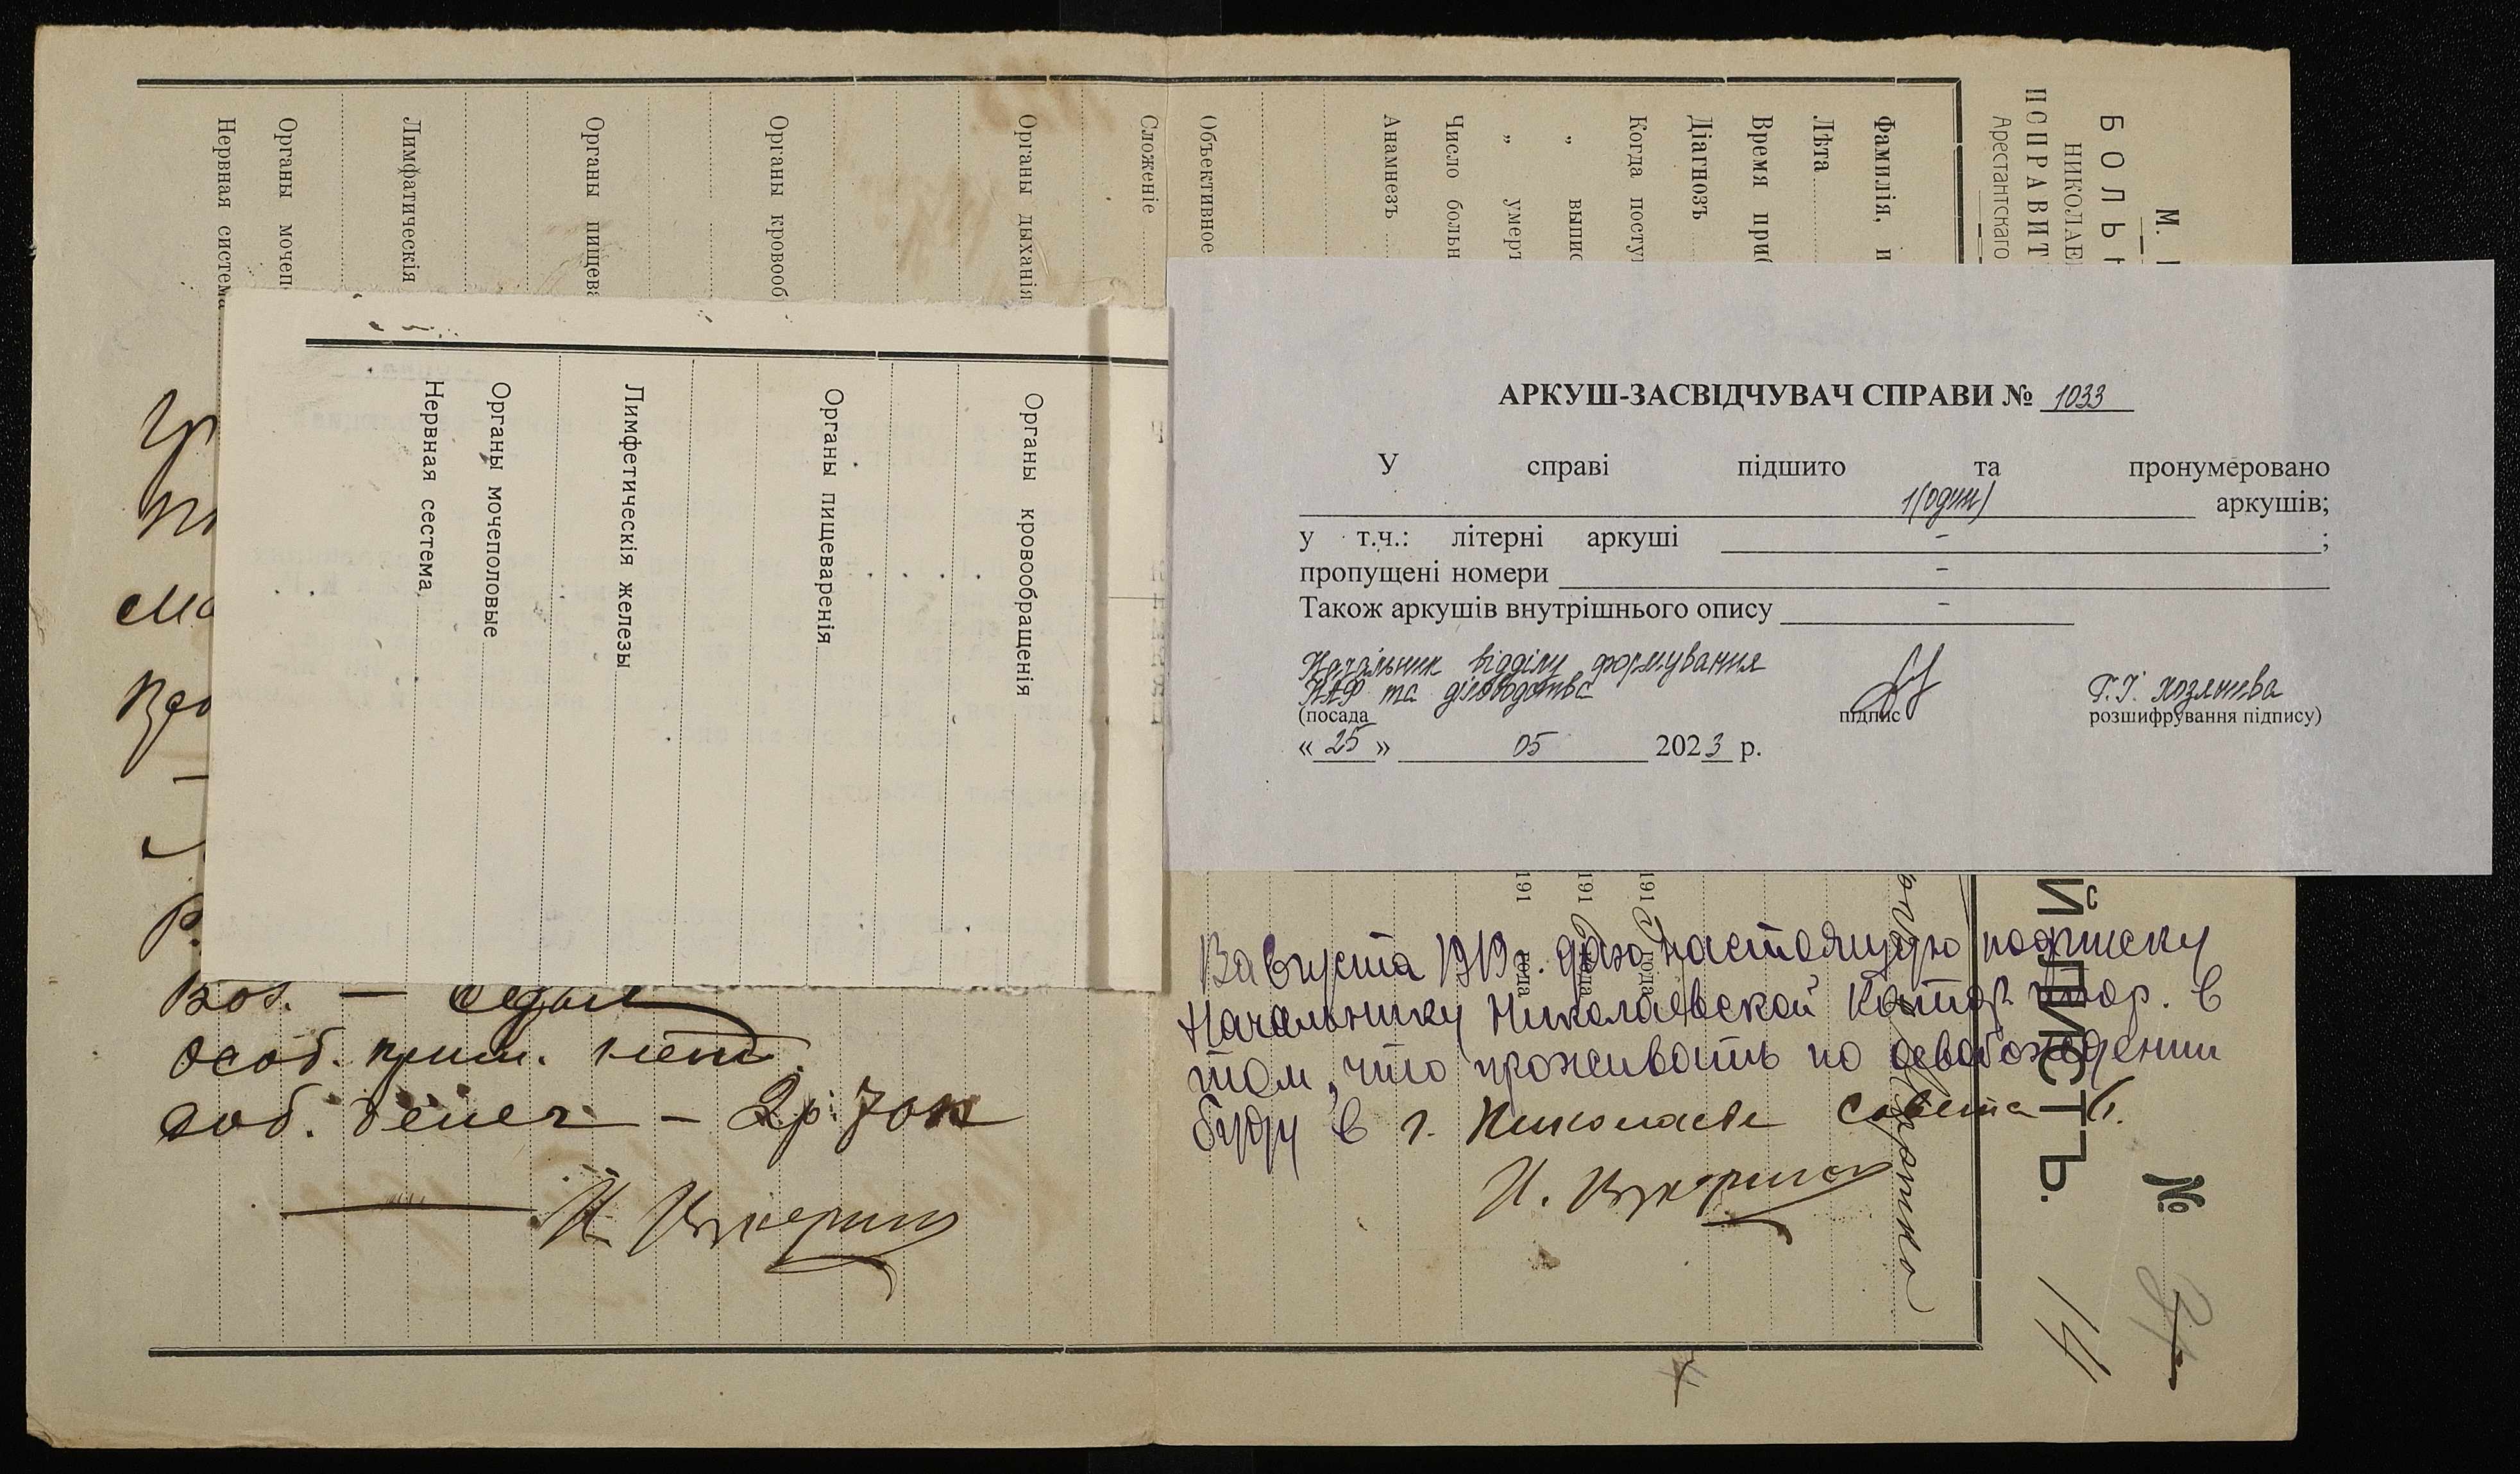 М.
БОЛЬ
НИКОЛАЕ
ИСПРАВИТ
Арестантскаго
Фамилія, и
Лѣта
Время при
Діагнозъ
Когда посту
„ выпис
„ умерт
Число больн
Анамнезъ
Объективное
Сложеніе
Органы дыханія
Органы кровооб
Органы пищева
Лимфатическія
Органы мочеп
Нервная система
Органы кровообращенія
Органы пищеваренія
Лимфетическія железы
Органы мочеполовые
Нервная сестема
АРКУШ-ЗАСВІДЧУВАЧ СПРАВИ № 1033
У справі підшито та пронумеровано
1(один) аркушів;
у т.ч.: літерні аркуші - ;
пропущені номери -
Також аркушів внутрішнього опису -
Начальник відділу формування
НАФ та діловодства Г.Г. Хозяшева
(посада підпис розшифрування підпису)
« 25 » 05 2023 р.
191 года
191 года
191 года
Й ЛИСТЪ.
№
14
августа 1919 г. даю настоящую подписку
Начальнику Николаевской Катор. тюр. в
том, что проживать по освобождении
буду в г. Николаеве
особ. прим. нет
соб. денег - 2р. 70к